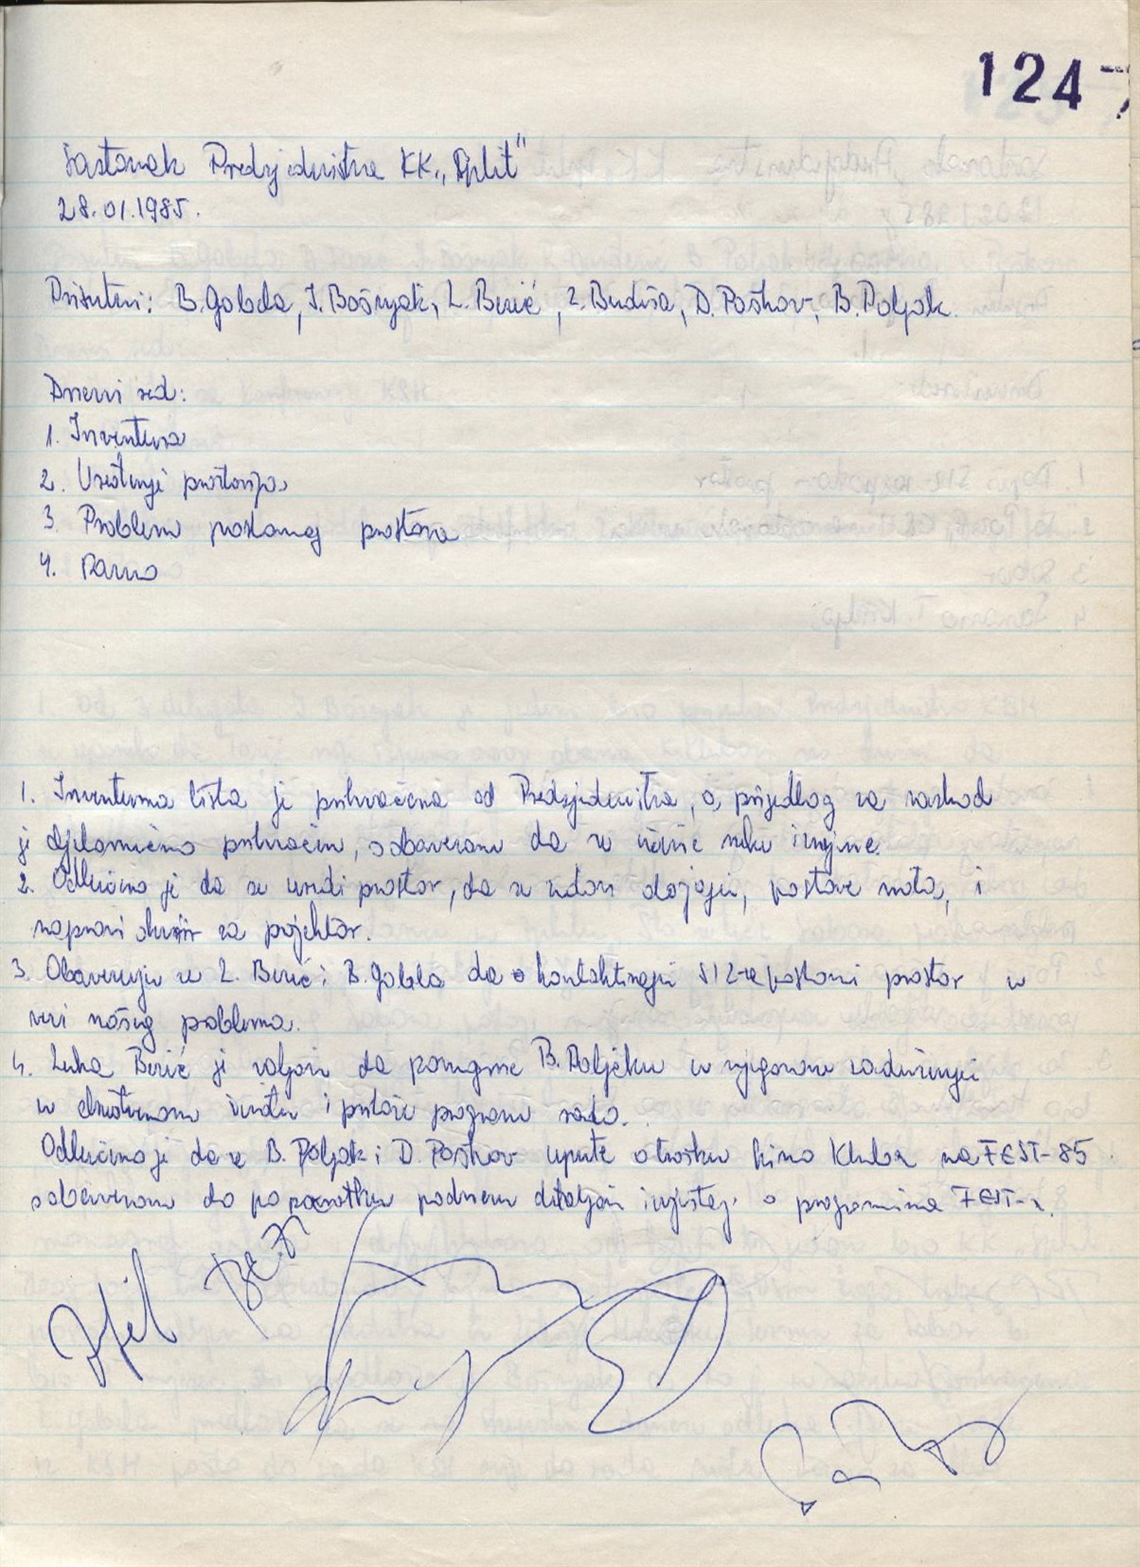 124
Sastanak Predsjedništva KK „Split"
28.01.1985.
Prisutni: B. Gabela, I. Bošnjak, L. Berić, Z. Budiša, D. Poškov, B. Poljak.
Dnevni red:
1. Inventura
2. Uređenje prostorija
3. Problem poslovnog prostora
4. Razno
1. Inventurna lista je prihvaćena od Predsjedništva, a prijedlog za rashod
je djelomično prihvaćen, s obavezom da se izvrše neke izmjene.
2. Odlučeno je da se uredi prostor, da se postave vrata, i
napravi okvir za projektor.
3. Obavezuju se L. Berić i B. Gabela da kontaktiraju SIZ-poslovni prostor u
vezi našeg problema.
4. Luka Berić je voljan da pomogne B. Poljaku u njegovom zaduženju
u društvenom i programu rada.
Odlučeno je da se B. Poljak i D. Poškov upute o trošku Kino Kluba na FEST-85
s obavezom da po povratku podnesu detaljan izvještaj o programima FEST-a.